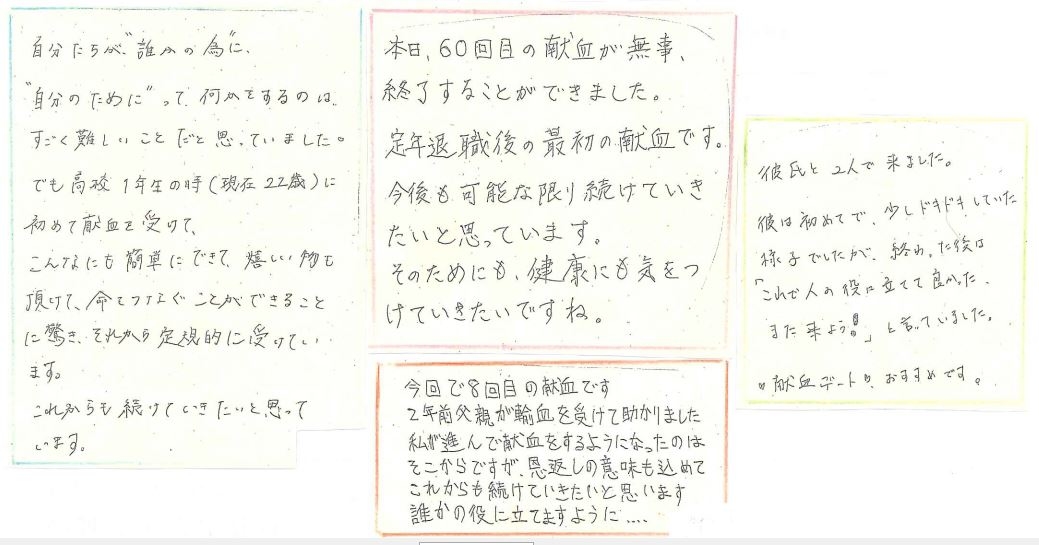 自分たちが、"誰かの為"に、
"自分のために"って、何かをするのは、
すごく難しいことだと思っていました。
でも高校1年生の時(現在22歳)に
初めて献血を受けて、
こんなにも簡単にできて、嬉しい物も
頂けて、命をつなぐことができること
に驚き、それから定規的に受けてい
ます。
これからも続けていきたいと思って
います。
本日、60回目の献血が無事、
終了することができました。
定年退職後の最初の献血です。
今後も可能な限り続けていき
たいと思っています。
そのためにも、健康にも気をつ
けていきたいですね。
今回で8回目の献血です
2年前父親が輸血を受けて助かりました
私が進んで献血をするようになったのは
そこからですが、恩返しの意味も込めて
これからも続けていきたいと思います
誰かの役に立てますように....
彼氏と2人で来ました。
彼は初めてで、少しドキドキしていた
様子でしたが、終わった後は
「これで人の役に立てて良かった、
また来よう!」と言っていました。
"献血デート"、おすすめです。